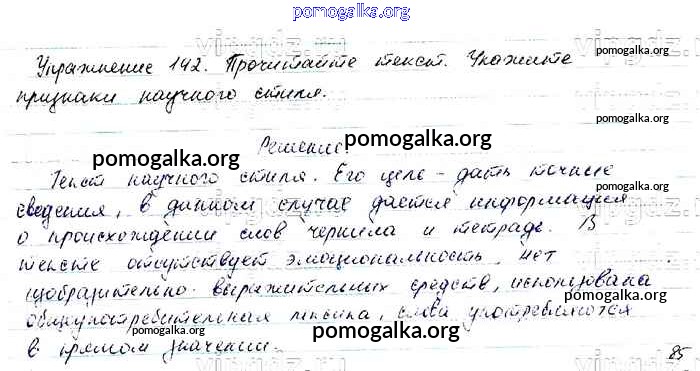 pomogalka.org
Упражнение 142. Прочитайте текст. Укажите
pomogalka.org
признаки научного стиля.
pomogalka.org
Решение
pomogalka.org
pomogalka.org
Текст научного стиля. Его цель - дать точные
pomogalka.org
сведения, в данном случае дается информация
о происхождении слов чернила и тетрадь. В
pomogalka.org
тексте отсутствует эмоциональность, нет
изобразительно-выразительных средств, использована
pomogalka.org
общеупотребительная лексика, слова употребляются
pomogalka.org
в прямом значении.
85